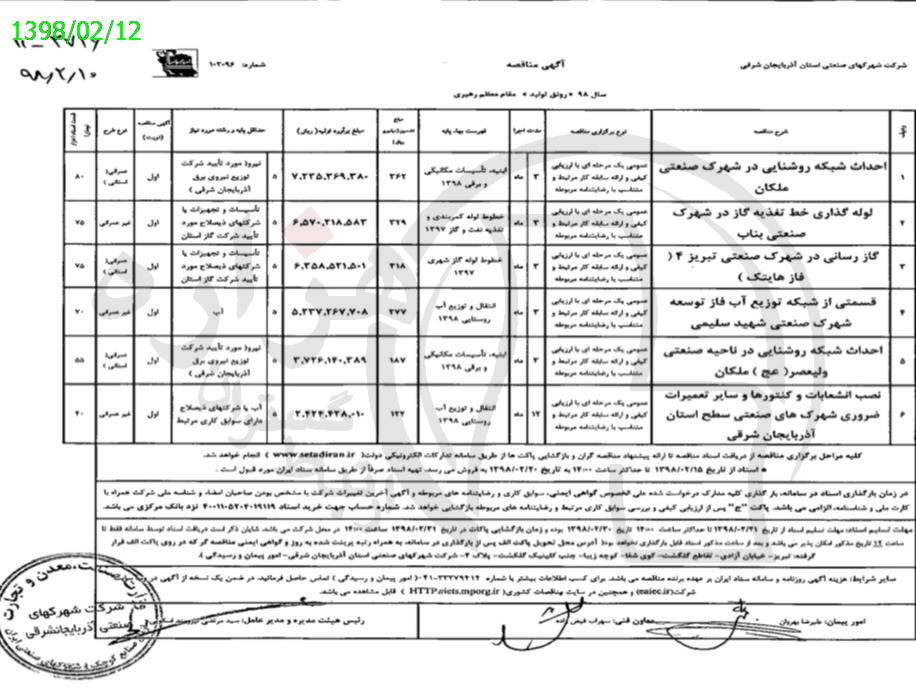 1398/02/12
۹۸/۲/۱۰
شرکت شهرکهای صنعتی استان آذربایجان شرقی
آگهی مناقصه
شماره: ۱۰۲۰۹۶
سال ۹۸ «رونق تولید» مقام معظم رهبری
ردیف شرح مناقصه نوع برگزاری مناقصه مدت اجرا فهرست بهاء پایه مبلغ برآورد اولیه( ریال) حداقل پایه و رشته مورد نیاز آگهی مناقصه (نوبت) نوع طرح
۱ احداث شبکه روشنایی در شهرک صنعتی ملکان عمومی یک مرحله ای با ارزیابی کیفی و ارائه سابقه کار مرتبط و متناسب با رضایتنامه مربوطه ۳ ماه ابنیه، تأسیسات مکانیکی و برقی ۱۳۹۸ ۳۶۲ ۷،۲۳۵،۳۶۹،۳۸۰ ۵ نیرو( مورد تأیید شرکت توزیع نیروی برق آذربایجان شرقی ) اول عمرانی( استانی ) ۸۰
۲ لوله گذاری خط تغذیه گاز در شهرک صنعتی بناب عمومی یک مرحله ای با ارزیابی کیفی و ارائه سابقه کار مرتبط و متناسب با رضایتنامه مربوطه ۳ ماه خطوط لوله کمربندی و تغذیه نفت و گاز ۱۳۹۷ ۳۲۹ ۶،۵۷۰،۲۱۸،۵۸۳ ۵ تأسیسات و تجهیزات یا شرکتهای ذیصلاح مورد تأیید شرکت گاز استان اول غیر عمرانی ۷۵
۳ گاز رسانی در شهرک صنعتی تبریز ۴ ( فاز هایتک ) عمومی یک مرحله ای با ارزیابی کیفی و ارائه سابقه کار مرتبط و متناسب با رضایتنامه مربوطه ۳ ماه خطوط لوله گاز شهری ۱۳۹۷ ۳۱۸ ۶،۳۵۸،۵۲۱،۵۰۱ ۵ تأسیسات و تجهیزات یا شرکتهای ذیصلاح مورد تأیید شرکت گاز استان اول عمرانی( استانی ) ۷۵
۴ قسمتی از شبکه توزیع آب فاز توسعه شهرک صنعتی شهید سلیمی عمومی یک مرحله ای با ارزیابی کیفی و ارائه سابقه کار مرتبط و متناسب با رضایتنامه مربوطه ۳ ماه انتقال و توزیع آب روستایی ۱۳۹۸ ۲۷۷ ۵،۲۳۷،۲۶۷،۷۰۸ ۵ آب اول غیر عمرانی ۷۰
۵ احداث شبکه روشنایی در ناحیه صنعتی ولیعصر( عج ) ملکان عمومی یک مرحله ای با ارزیابی کیفی و ارائه سابقه کار مرتبط و متناسب با رضایتنامه مربوطه ۳ ماه ابنیه، تأسیسات مکانیکی و برقی ۱۳۹۸ ۱۸۷ ۳،۷۲۶،۱۴۰،۳۸۹ ۵ نیرو( مورد تأیید شرکت توزیع نیروی برق آذربایجان شرقی ) اول عمرانی( استانی ) ۵۵
۶ نصب انشعابات و کنتورها و سایر تعمیرات ضروری شهرک های صنعتی سطح استان آذربایجان شرقی عمومی یک مرحله ای با ارزیابی کیفی و ارائه سابقه کار مرتبط و متناسب با رضایتنامه مربوطه ۱۲ ماه انتقال و توزیع آب روستایی ۱۳۹۸ ۱۲۲ ۲،۴۲۴،۴۲۸،۰۱۰ ۵ آب یا شرکتهای ذیصلاح دارای سوابق کاری مرتبط اول غیر عمرانی ۴۰
کلیه مراحل برگزاری مناقصه از دریافت اسناد مناقصه تا ارائه پیشنهاد مناقصه گران و بازگشایی پاکت ها از طریق سامانه تدارکات الکترونیکی دولت( www.setadiran.ir ) انجام خواهد شد.
● اسناد از تاریخ ۱۳۹۸/۰۲/۱۵ تا حداکثر ساعت ۱۴:۰۰ به تاریخ ۱۳۹۸/۰۲/۲۰ به فروش می رسد. تهیه اسناد صرفاً از طریق سامانه ستاد ایران مورد قبول است .
در زمان بارگذاری اسناد در سامانه، بار گذاری کلیه مدارک درخواست شده علی الخصوص گواهی ایمنی، سوابق کاری و رضایتنامه های مربوطه و آگهی آخرین تغییرات شرکت با مشخص بودن صاحبان امضاء و شناسه ملی شرکت همراه با
کارت ملی و شناسنامه، الزامی می باشد. پاکت "ج" پس از ارزیابی کیفی و بررسی سوابق کاری مرتبط و رضایتنامه های مربوطه بازگشایی خواهد شد. شماره حساب جهت خرید اسناد ۴۰۰۱۱۰۵۲۰۴۰۱۹۱۱۹ نزد بانک مرکزی می باشد.
مهلت تسلیم اسناد: مهلت تسلیم اسناد از تاریخ ۱۳۹۸/۰۲/۲۱ تا حداکثر ساعت ۱۴:۰۰ تاریخ ۱۳۹۸/۰۲/۳۰ بوده و زمان بازگشایی پاکات در تاریخ ۱۳۹۸/۰۲/۳۱ ساعت ۱۴:۰۰ در محل شرکت می باشد. شایان ذکر است دریافت اسناد توسط سامانه فقط تا
ساعت ۱۴ تاریخ مذکور امکان پذیر می باشد و بعد از ساعت مذکور اسناد قابل بارگذاری نخواهد بود( آدرس محل تحویل پاکت الف پس از بارگذاری در سامانه، به همراه رتبه پرینت شده به روز و گواهی ایمنی مناقصه گر که در روی پاکت الف قرار
گرفته: تبریز- خیابان آزادی- تقاطع گلگشت- کوی شفا- کوچه زیبا- جنب کلینیک گلگشت- پلاک ۴- شرکت شهرکهای صنعتی استان آذربایجان شرقی- امور پیمان و رسیدگی ).
سایر شرایط: هزینه آگهی روزنامه و سامانه ستاد ایران بر عهده برنده مناقصه می باشد. برای کسب اطلاعات بیشتر با شماره ۳۳۳۷۹۴۱۴-۰۴۱( امور پیمان و رسیدگی ) تماس حاصل فرمائید. در ضمن یک نسخه از آگهی در
شرکت(eaiec.ir) و همچنین در سایت مناقصات کشوری( HTTP://iets.mporg.ir ) قابل مشاهده می باشد.
امور پیمان: علیرضا بهریان
معاون فنی: سهراب فیض
رئیس هیئت مدیره و مدیر عامل: سید مرتضی
وزارت صنعت، معدن و تجارت
شرکت شهرکهای
صنعتی آذربایجانشرقی